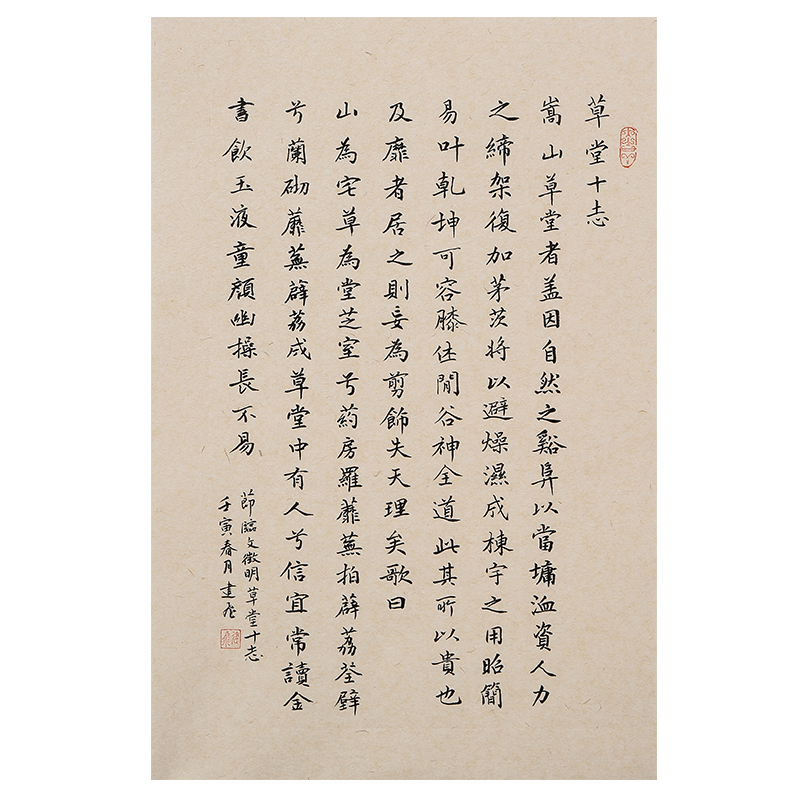 草堂十志
嵩山草堂者盖因自然之谿阜以當墉洫資人力
之締架復加茅茨将以避燥濕成棟宇之用昭簡
易叶乾坤可容膝休閒谷神全道此其所以貴也
及靡者居之則妄為剪飾失天理矣歌曰
山為宅草為堂芝室兮葯房羅蘼蕪拍薜荔荃壁
兮蘭砌蘼蕪薜荔成草堂中有人兮信宜常讀金
書飲玉液童顏幽操長不易
節臨文徵明草堂十志
壬寅春月建